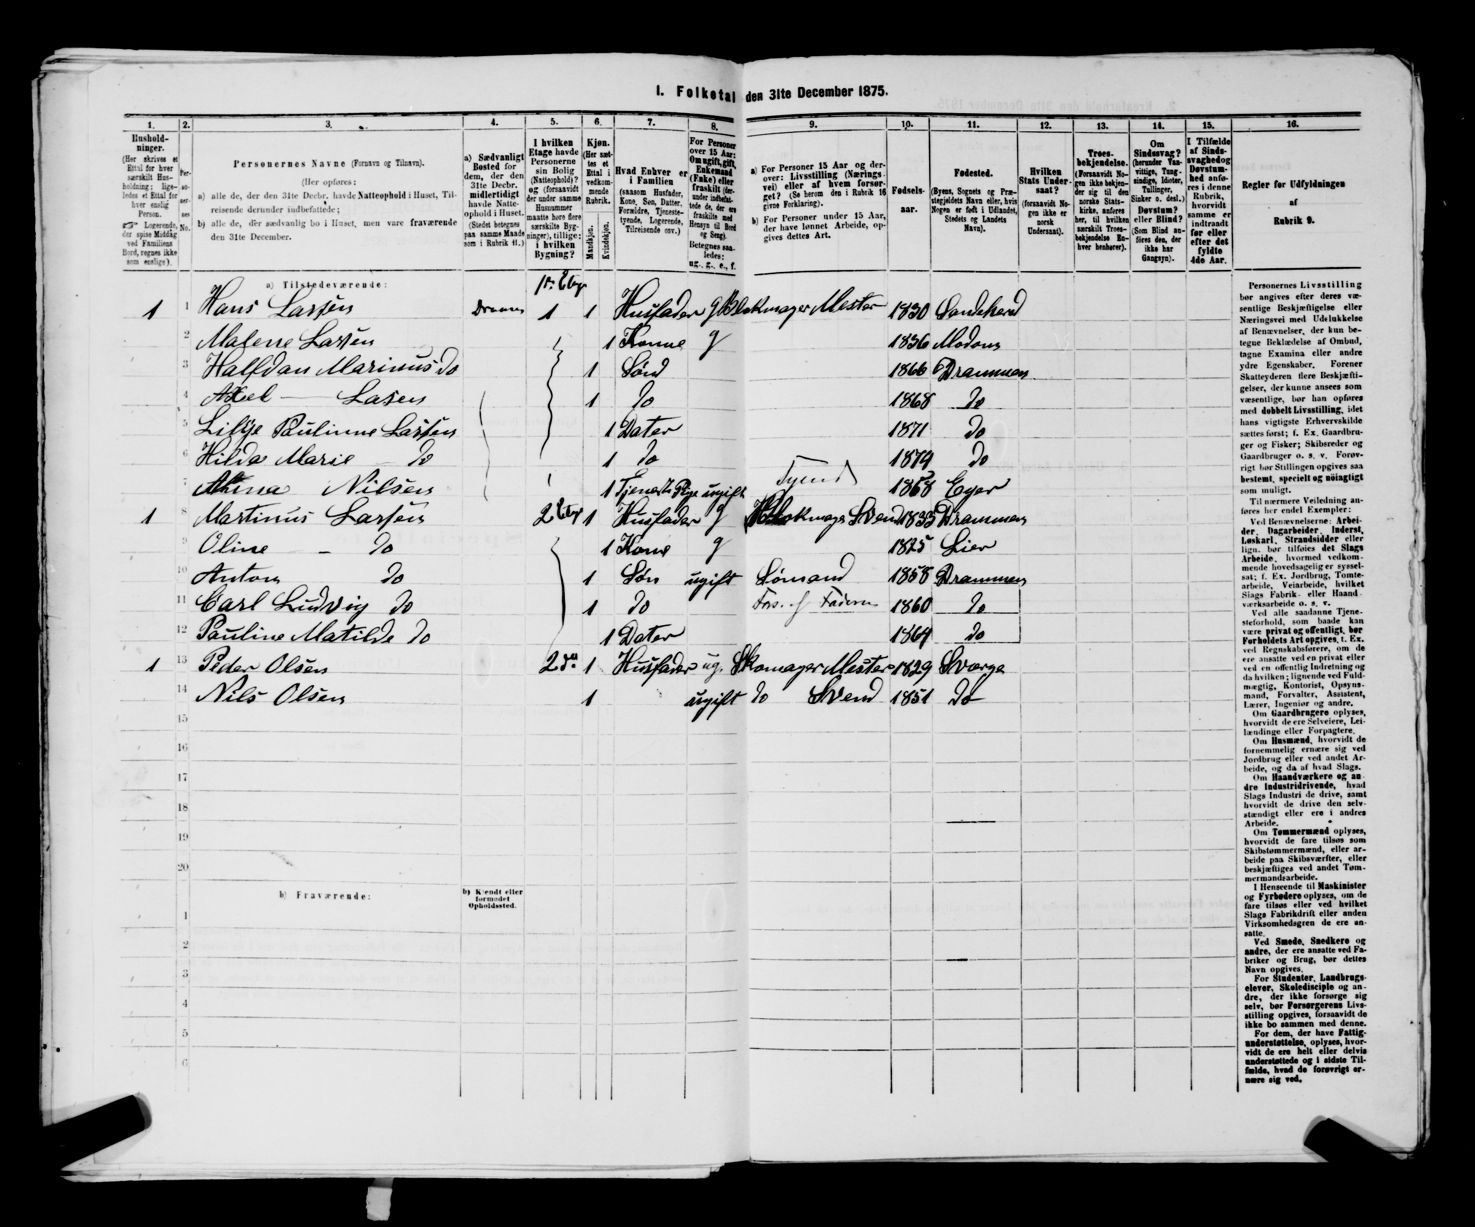 I. Folketal den 31te December 1875.
1. 2. 3. 4. 5. 6. 7. 8. 9. 10. 11. 12. 13. 14. 15. 16.
Husholdninger.
(Her skrives et Ettal for hver særskilt Husholdning; ligeledes et Ettal for hver enslig Person.
Logerende, der spise Middag ved Familiens Bord, regnes ikke som enslige).
Personernes No.
Personernes Navne (Fornavn og Tilnavn).
(Her opføres:
a) alle de, der den 31te Decbr. havde Natteophold i Huset, Tilreisende derunder indbefattede;
b) alle de, der sædvanlig bo i Huset, men vare fraværende den 31te December.
a) Sædvanligt Bosted for dem, der den 31te Decbr. midlertidigt havde Natteophold i Huset.
(Stedet betegnes paa samme Maade som i Rubrik 11.)
I hvilken Etage havde Personerne sin Bolig (Natteophold)? og (forsaavidt der under samme Husnummer maatte høre flere særskilte Bygninger), tillige: i hvilken Bygning?
Kjøn.
(Her sættes et Ettal i vedkommende Rubrik.
Mandkjøn.
Kvindekjøn.
Hvad Enhver er i Familien
(saasom Husfader, Kone, Søn, Datter, Forældre, Tjenestetyende, Logerende, Tilreisende osv.)
For Personer over 15 Aar: Om ugift, gift, Enkemand (Enke) eller fraskilt (derunder indbefattede de, der ere fraskilte med Hensyn til Bord og Seng).
Betegnes saaledes: ug., g., e., f.
a) For Personer 15 Aar og derover: Livsstilling (Næringsvei) eller af hvem forsørget? (Se herom den i Rubrik 16 givne Forklaring).
b) For Personer under 15 Aar, der have lønnet Arbeide, opgives dettes Art.
Fødselsaar.
Fødested.
(Byens, Sognets og Præstegjeldets Navn eller, hvis Nogen er født i Udlandet, Stedets og Landets Navn).
Hvilken Stats Undersaat?
(forsaavidt Nogen ikke er norsk Undersaat).
Troesbekjendelse.
(Forsaavidt Nogen ikke bekjender sig til den norske Statskirke, anføres her, til hvilken særskilt Troesbekjendelse Enhver henhører).
Om Sindssvag? (herunder Vanvittige, Tungsindige, Idioter, Tullinger, Sinker o. desl.)
Døvstum? eller Blind? (Som Blind anføres den, der ikke har Gangsyn).
I Tilfælde af Sindssvaghed og Døvstumhed anføres i denne Rubrik, hvorvidt samme er indtraadt før eller efter det fyldte 4de Aar.
Regler for Udfyldningen af Rubrik 9.
a) Tilstedeværende:
1 1 Hans Larsen 1 1 Husfader g Blokmager Mester 1830 Sandeherd
2 Malene Larsen 1 Konne g 1836 Modom
3 Halfdan Marinus do 1 Sønd 1866 Drammen
4 Axel — Lasen 1 Do 1868 Do
5 Lilye Paulinne Larsen 1 Dater 1871 do
6 Hilda Marie do 1 do 1874 do
7 Nilsen 1 Tjeneste Pige ugift Tyend Eger
1 8 Martinus Larsen 2 Etg 1 Husfader g Blokmager Svend 1835 Drammen
9 Oline — do 1 Kone g 1825 Lier
10 Anton do 1 Søn ugift Sømand 1858 Drammen
11 Carl Ludvig do 1 do Fors. af Faderen 1860 do
12 Pauline Matilde do 1 Dater 1864 do
1 13 Peder Olsen 2 do 1 Husfader ug. Skomager Mester 1829 Sværge
14 Nils Olsen 1 ugift do Svend 1851 Do
15
16
17
18
19
20
b) Fraværende:
b) Kjendt eller formodet Opholdssted.
1
2
3
4
5
6
Personernes Livsstilling
bør angives efter deres væ-
sentlige Beskjæftigelse eller
Næringsvei med Udelukkelse
af Benævnelser, der kun be-
tegne Bekladelse af Ombud,
tagne Examina eller andre
ydre Egenskaber. Forener
Skatteyderen flere Beskjæfti-
gelser, der kunne ansees som
væsentlige, bør han opføres
med dobbelt Livsstilling, idet
hans vigtigste Erhvervskilde
sættes først; f. Ex. Gaardbru-
ger og Fisker; Skibsreder og
Gaardbruger o. s. v. Forøv-
rigt bør Stillingen opgives saa
bestemt, specielt og nøiagtigt
som muligt.
Til nærmere Veiledning an-
føres her endel Exempler:
Ved Benævnelserne: Arbei-
der, Dagarbeider, Inderst,
Løskarl, Strandsidder eller
lign. bør tilføies det Slags
Arbeide, hvormed vedkom-
mende hovedsagelig er syssel-
sat; f. Ex. Jordbrug, Tomte-
arbeide, Veiarbeide, hvilket
Slags Fabrik- eller Haand-
værksarbeide o. s. v.
Ved alle saadanne Tjene-
steforhold, som baade kan
være privat og offentligt, bør
Forholdets Art opgives, f. Ex.
ved Regnskabsførere, om de
ere ansatte ved en privat eller
ved en offentlig Indretning og
da hvilken; lignende ved Fuld-
mægtig, Kontorist, Opsyns-
mand, Forvalter, Assistent,
Lærer, Ingeniør og andre.
Om Gaardbrugere oplyses,
hvorvidt de ere Selveiere, Lei-
lændinge eller Forpagtere.
Om Husmænd, hvorvidt de
fornemmelig ernære sig ved
Jordbrug eller ved andet Ar-
beide, og da af hvad Slags.
Om Haandværkere og an-
dre Industridrivende, hvad
Slags Industri de drive, samt
hvorvidt de drive den selv-
stændigt eller ere i andres
Arbeide.
Om Tømmermænd oplyses,
hvorvidt de fare tilsøs som
Skibstømmermænd, eller ar-
beide paa Skibsværfter, eller
beskjæftiges ved andet Tøm-
mermandsarbeide.
I Henseende til Maskinister
og Fyrbødere oplyses, om de
fare tilsøs eller ved hvilket
Slags Fabrikdrift eller anden
Virksomhedsgren de ere an-
satte.
Ved Smede, Snedkere og
andre, der ere ansatte ved Fa-
briker og Brug, bør dettes
Navn opgives.
For Studenter, Landbrugs-
elever, Skoledisciple og an-
dre, der ikke forsørge sig
selv, bør Forsørgerens Livs-
stilling opgives, forsaavidt de
ikke bo sammen med denne.
For dem, der have Fattig-
understøttelse, oplyses, hvor-
vidt de ere helt eller delvis
understøttede og i sidste Til-
fælde, hvad de forøvrigt er-
nære sig ved.